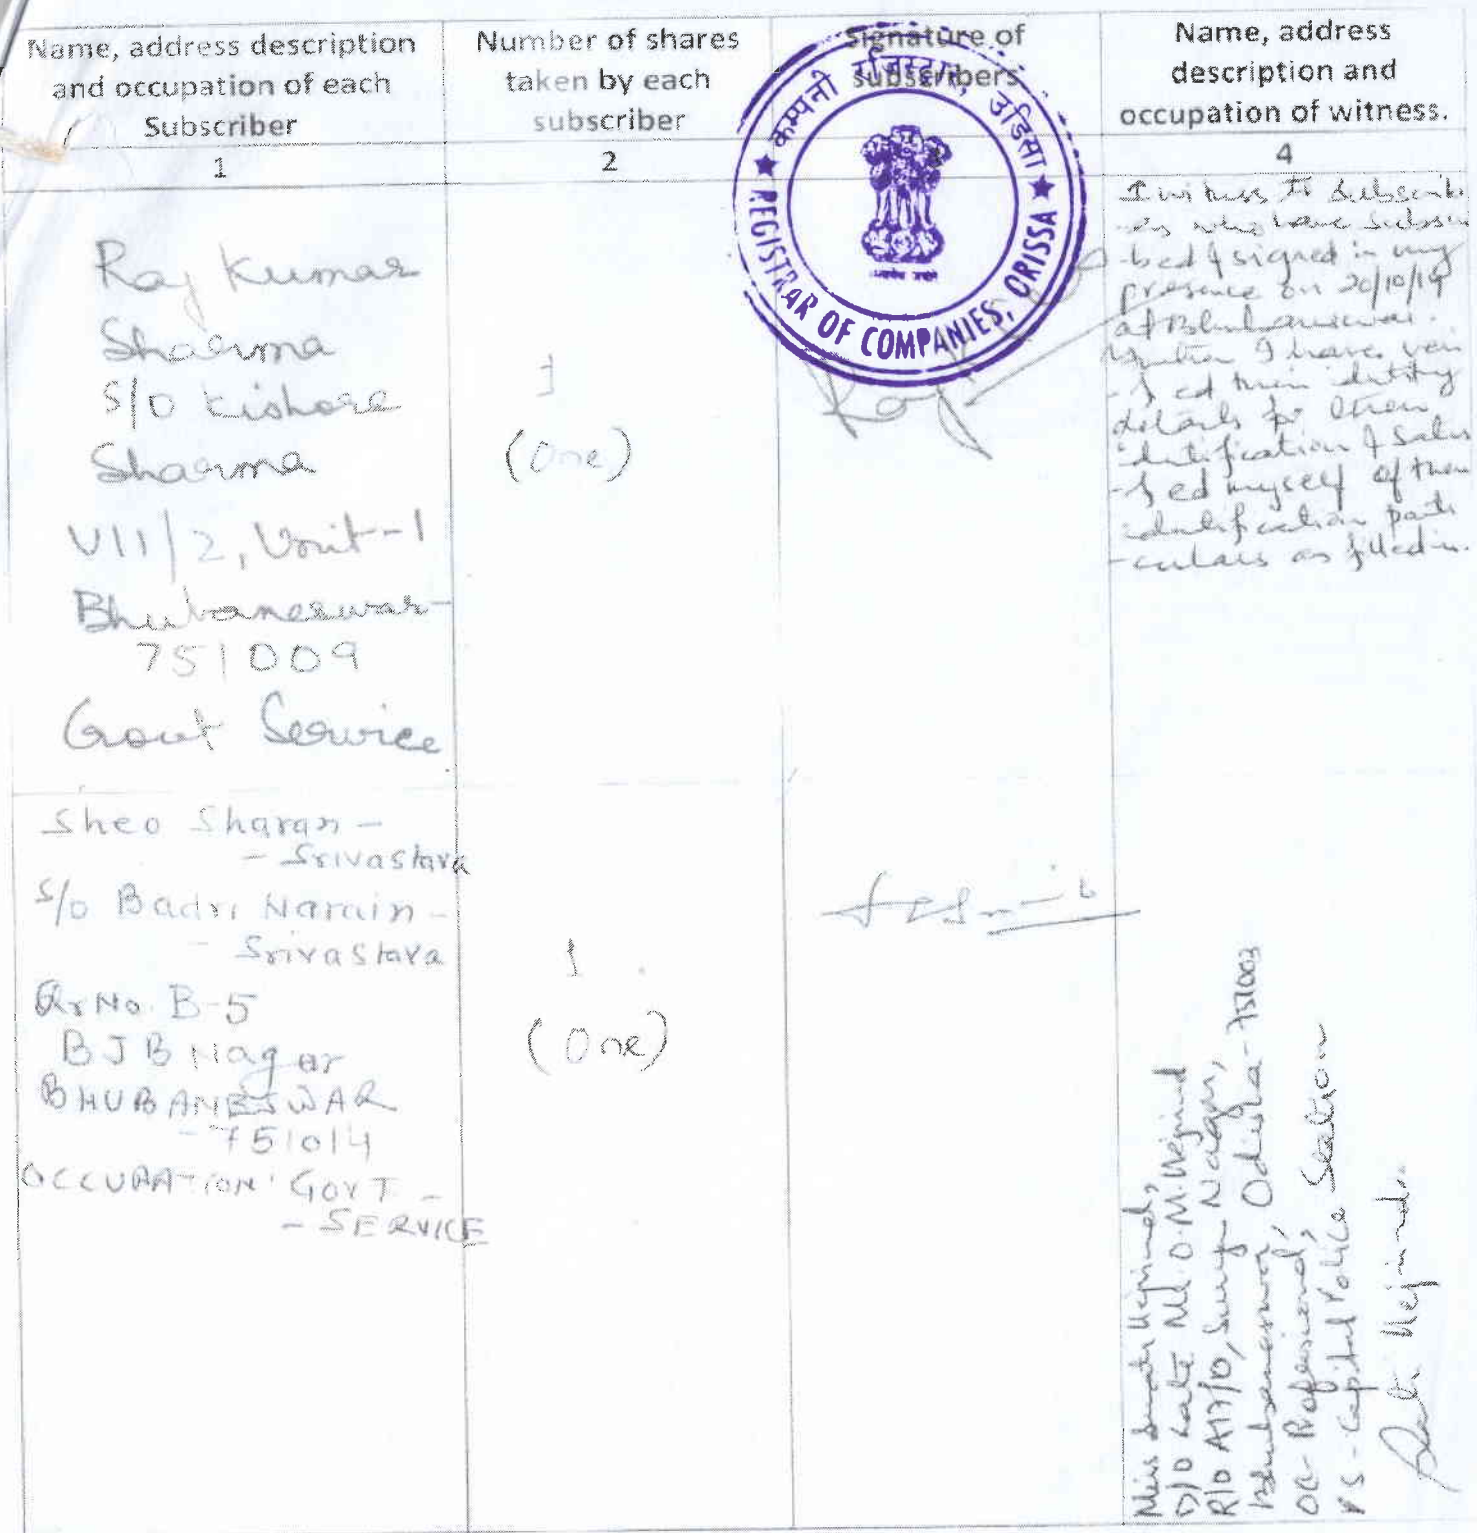 Name, address description
and occupation of each
Subscriber
Number of shares
taken by each
subscriber
Signature of
subscribers
Name, address
description and
occupation of witness.
1
2
4
कम्पनी रजिस्ट्रार, उडिसा
REGISTRAR OF COMPANIES, ORISSA
Raj Kumar
Sharma
S/O Kishore
Sharma
VII/2, Unit-1
Bhubaneswar-
751009
Govt Service
1
(One)
I witness to subscrib
-ers who have subscri
-bed & signed in my
presence on 20/10/14
at Bhubaneswar.
I have veri
-fied their
details for their
identification & satis
-fied myself of their
identification parti
-culars as filled in.
Sheo Sharan -
- Srivastava
S/o Badri Narain -
- Srivastava
Qr No. B-5
BJB Nagar
BHUBANESWAR
- 751014
OCCUPATION: GOVT -
- SERVICE
1
(One)
Miss
D/O Late
R/O A17/0, Nagar,
Bhubaneswar, Odisha - 751003
Professional,
PS - Capital Police Station